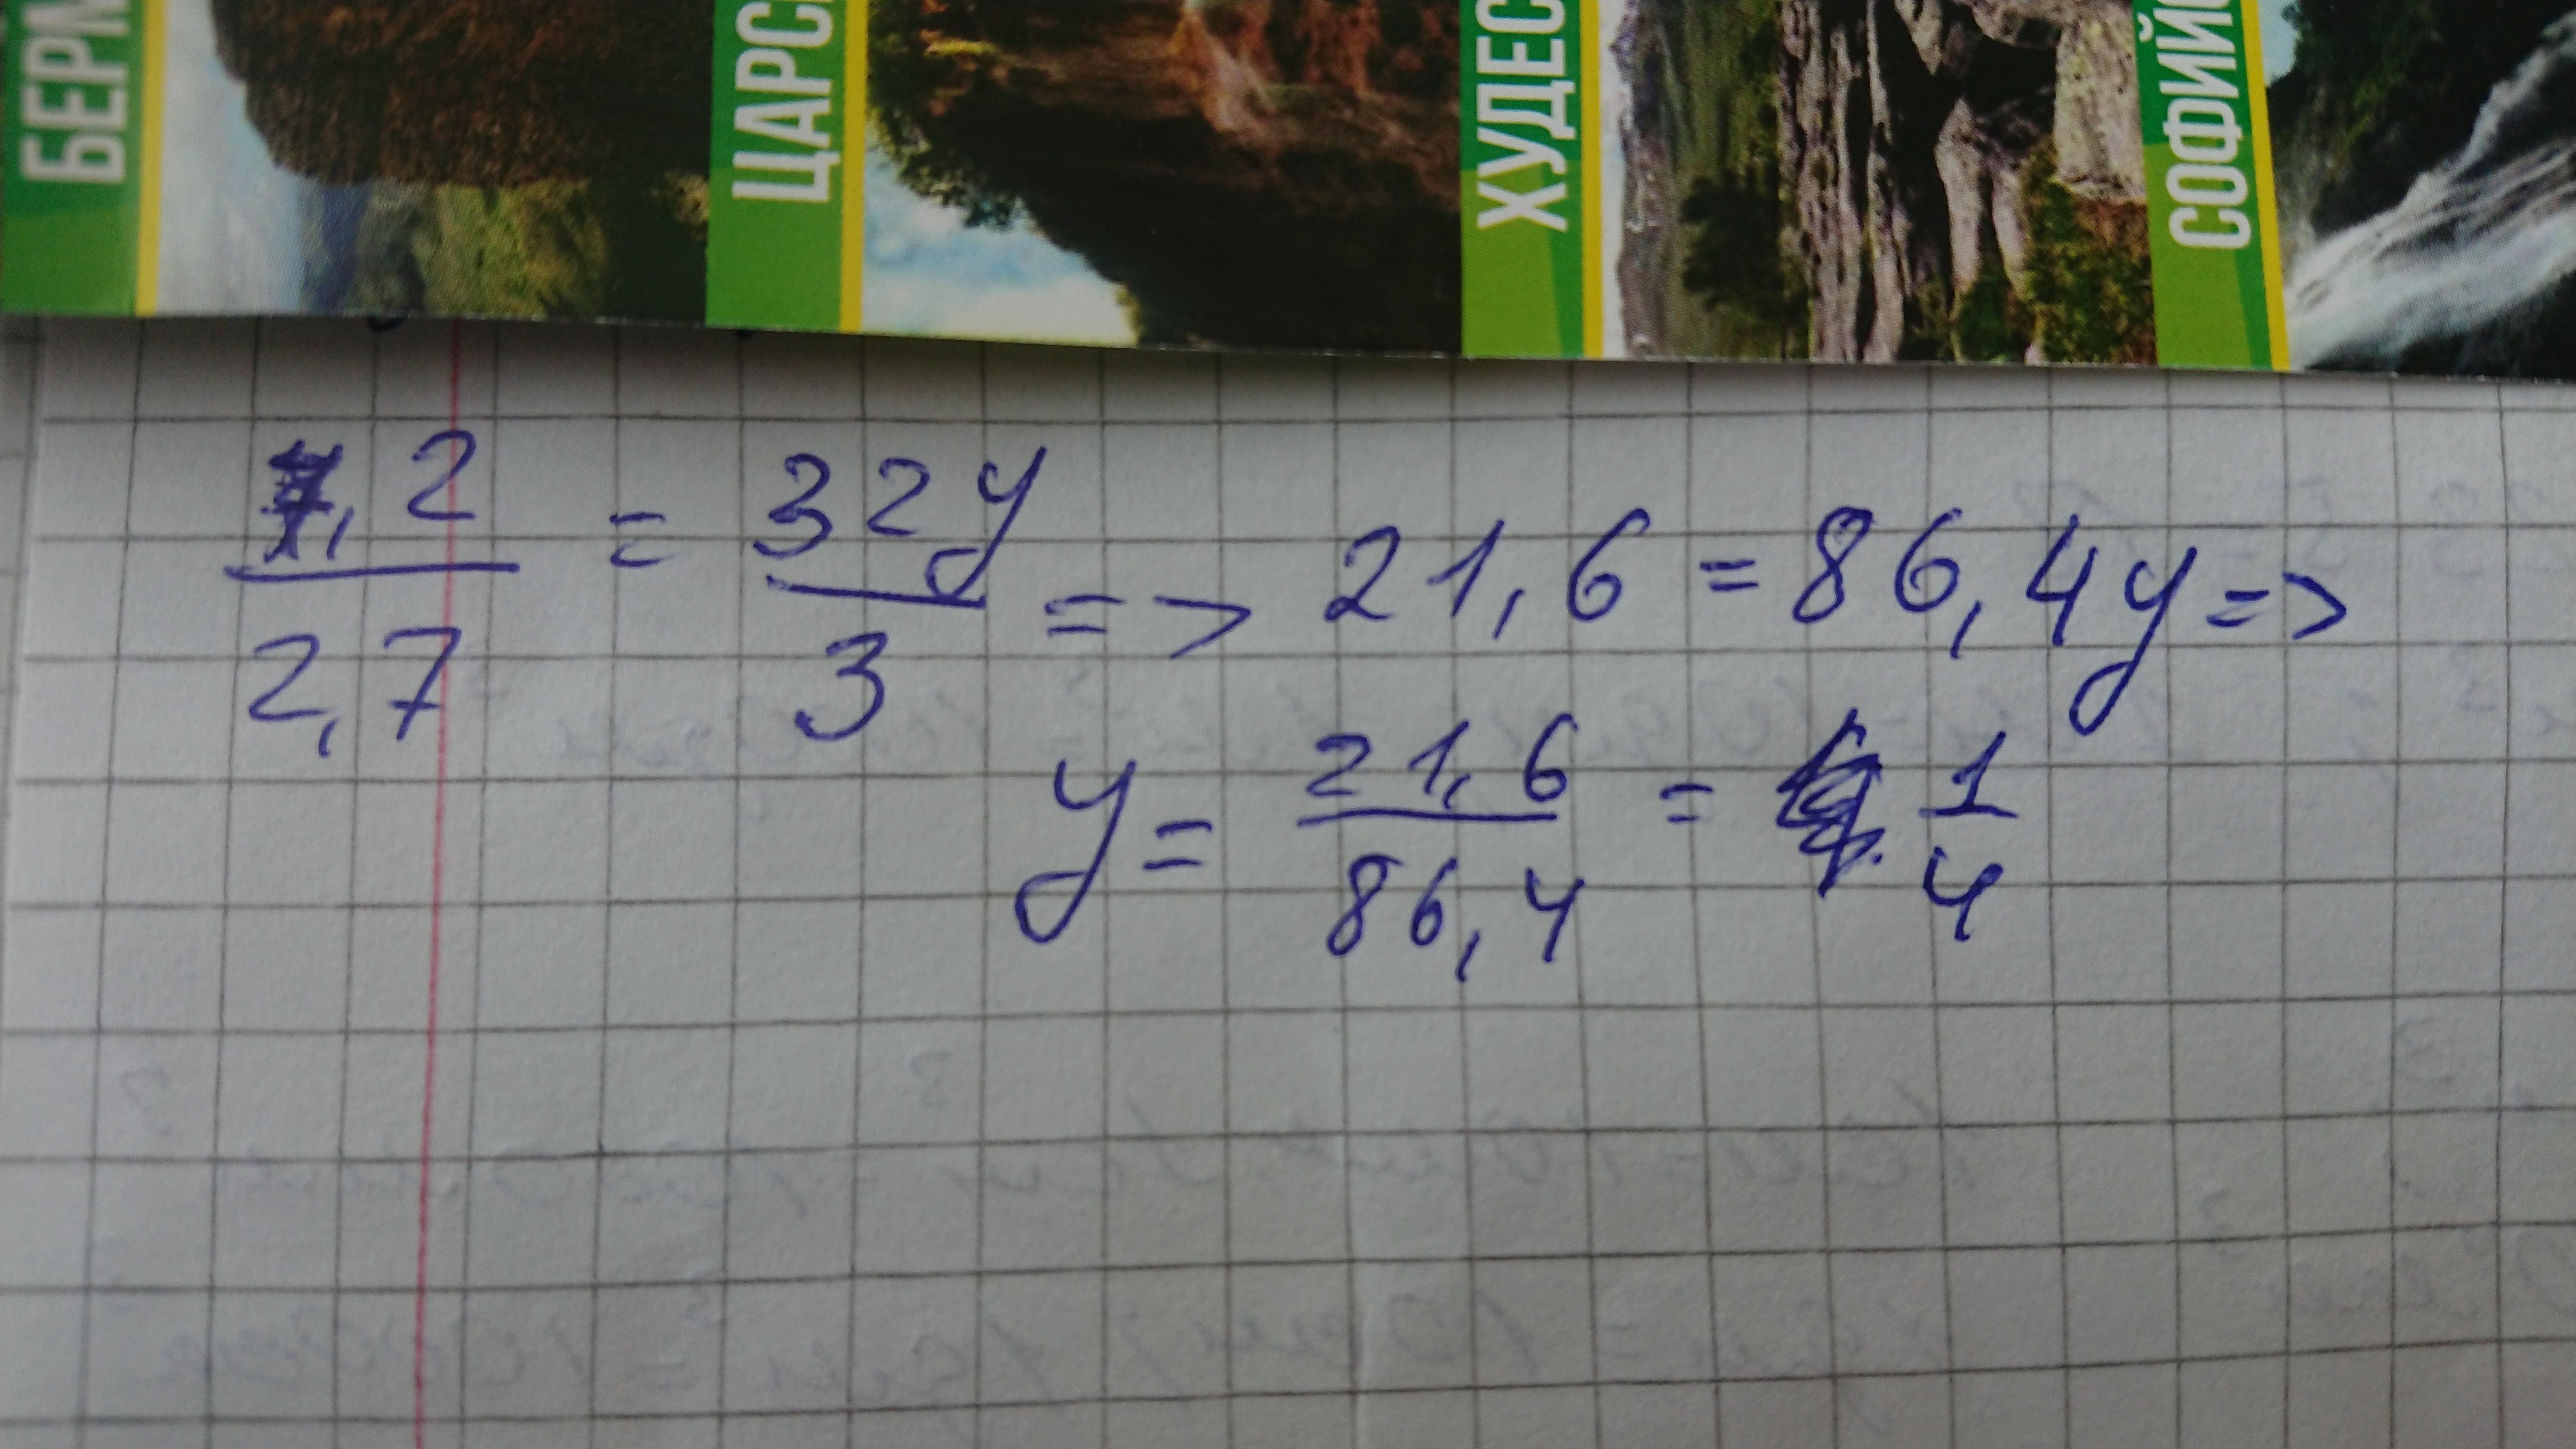 БЕРМ
ЦАРС
ХУДЕС
СОФИЙС
7,2/2,7 = 32y/3 => 21,6 = 86,4y =>
y = 21,6/86,4 = 1/4